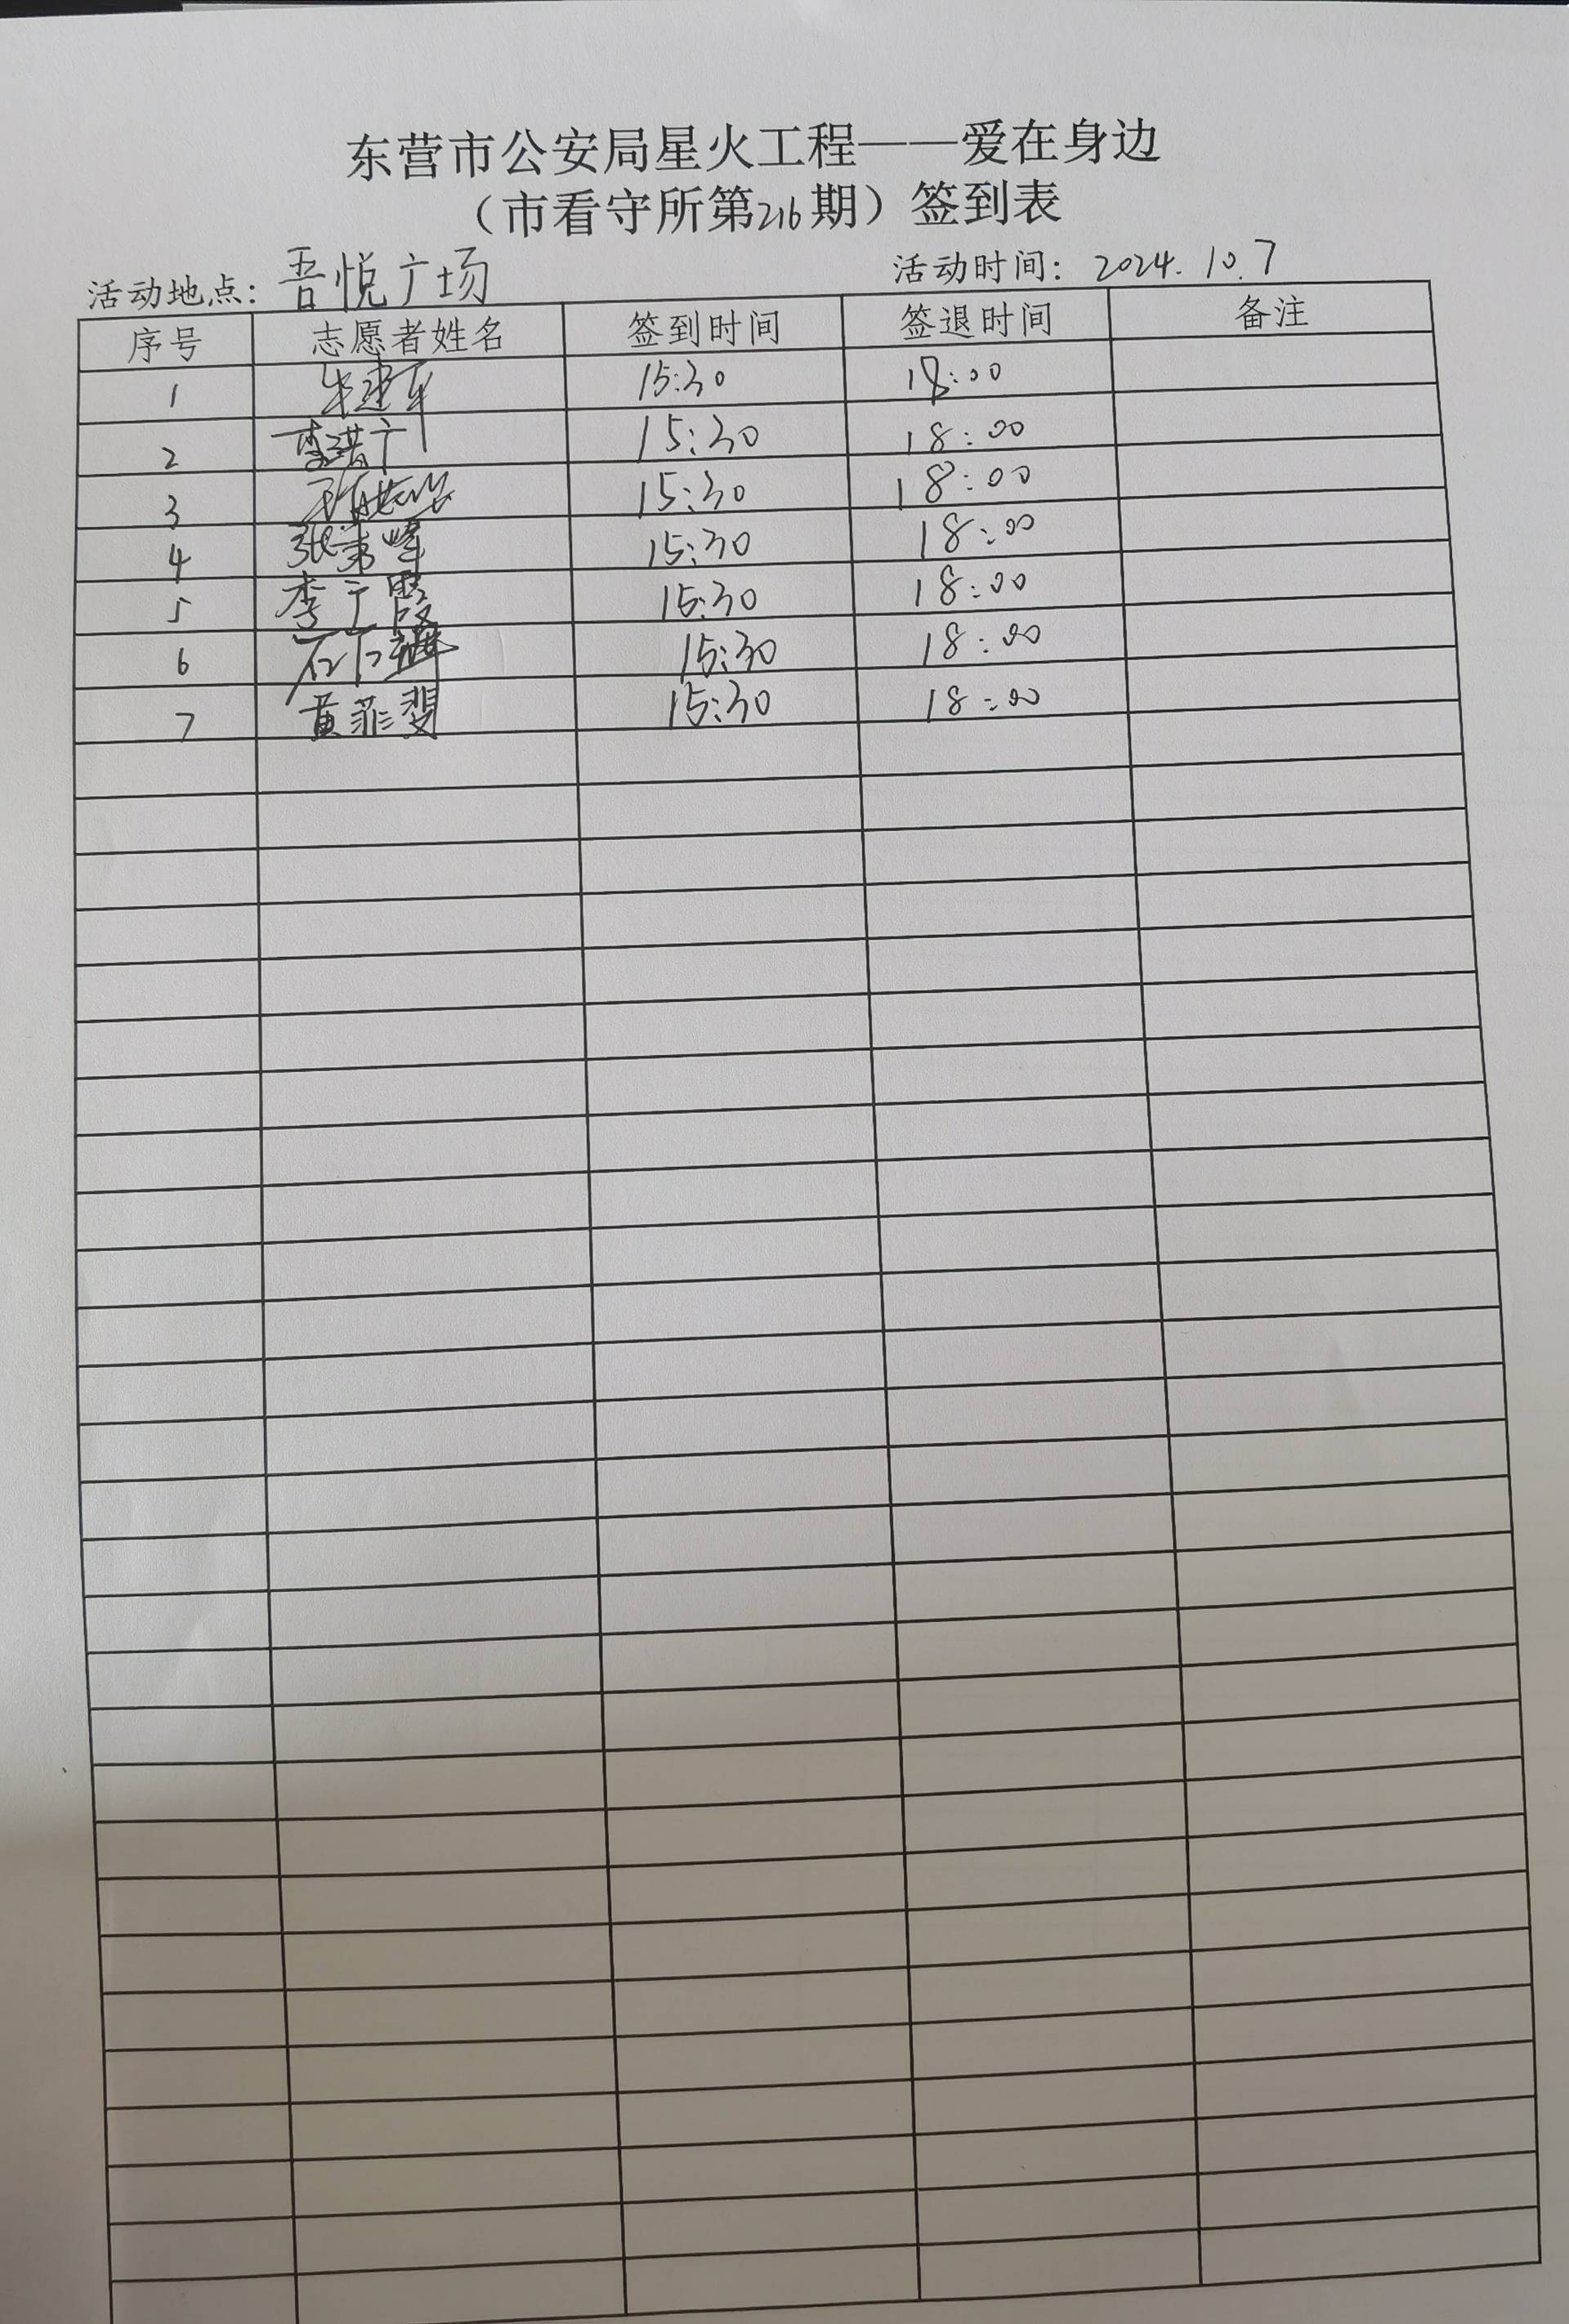 东营市公安局星火工程——爱在身边
（市看守所第216期）签到表
活动地点：吾悦广场 活动时间：2024.10.7
序号 志愿者姓名 签到时间 签退时间 备注
1 朱建军 15:30 18:00
2 李洪广 15:30 18:00
3 15:30 18:00
4 张 峰 15:30 18:00
5 李广霞 15:30 18:00
6 15:30 18:00
7 黄菲斐 15:30 18:00